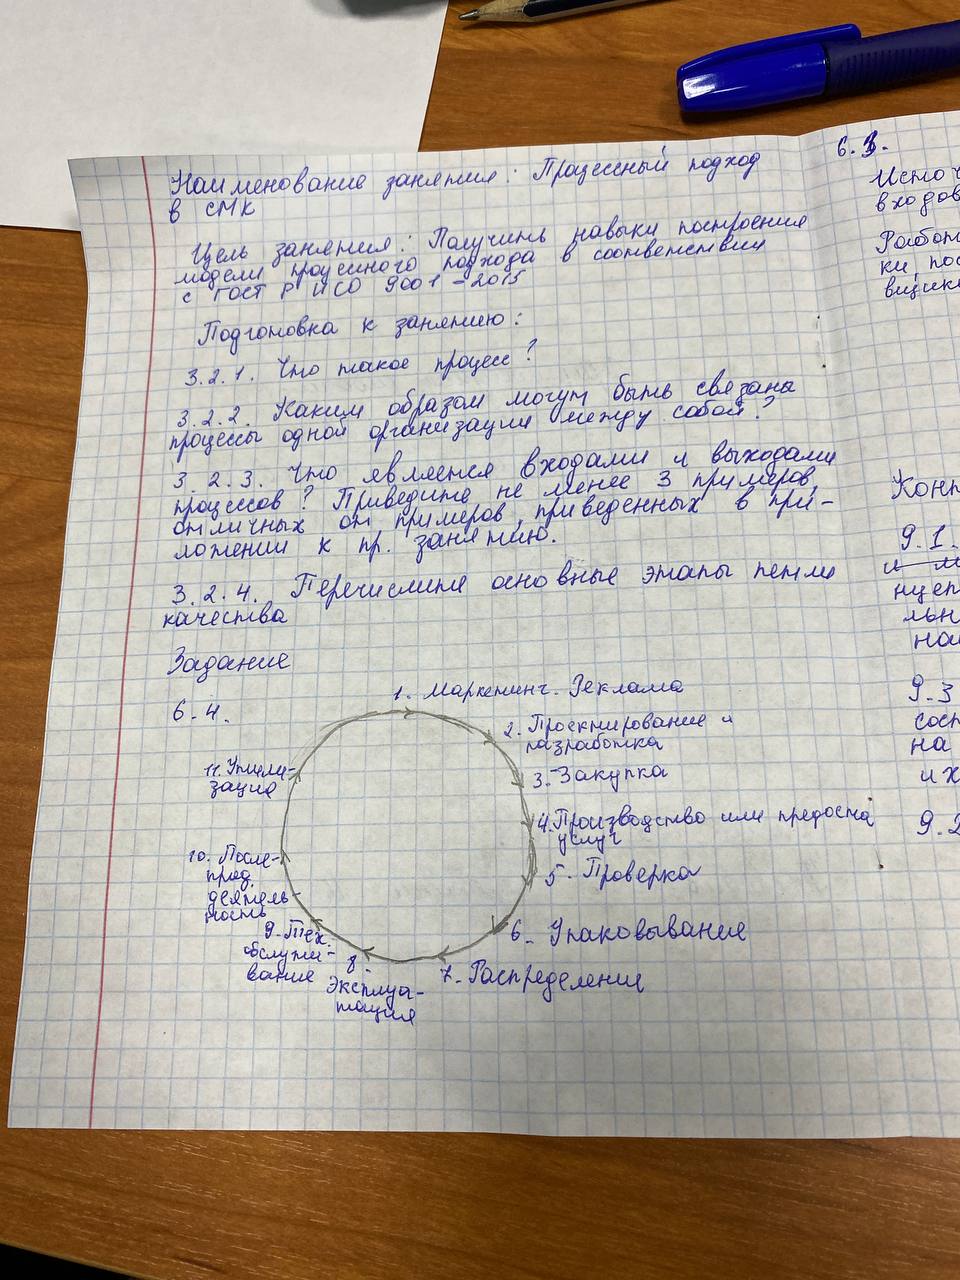 Наименование занятия: Процессный подход
в СМК
Цель занятия: Получить навыки построения
модели процессного подхода в соответствии
с ГОСТ Р ИСО 9001-2015
Подготовка к занятию:
3.2.1. Что такое процесс?
3.2.2. Каким образом могут быть связаны
процессы одной организации между собой?
3.2.3. Что является входами и выходами
процессов? Приведите не менее 3 примеров,
отличных от примеров, приведенных в при-
ложении к пр. занятию.
3.2.4. Перечислите основные этапы петли
качества
Задание
6.4.
1. Маркетинг. Реклама
2. Проектирование и
разработка
3. Закупка
4. Производство или предоста
услуг
5. Проверка
6. Упаковывание
7. Распределение
8.
Эксплуа-
тация
9. Тех.
обслужи-
вание
10. После-
прод.
деятель-
ность
11. Утили-
зация
6.3.
Источ
входов
Работ
ки, пос
вщик
Конт
9.1.
и м
нцеп
льн
на
9.3
сост
на
их
9.2